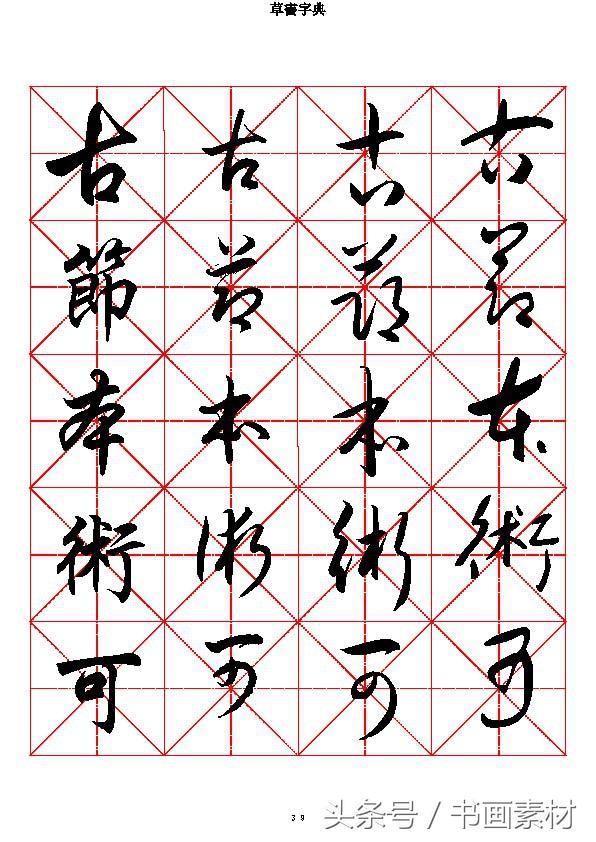 草書字典
古 古 古 古
節 節 節 節
本 本 本 本
術 術 術 術
可 可 可 可
39
头条号 / 书画素材